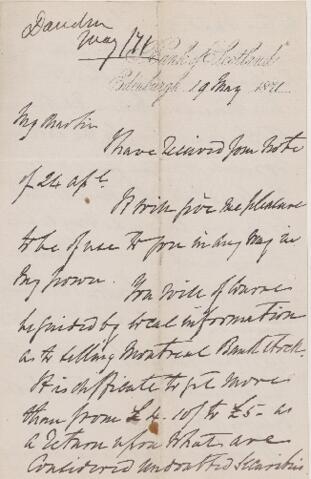 May/71
Bank of Scotland
Edinburgh 19 May 1871
I have received your Note
of 24 apl.
It will give me pleasure
to be of use to you in any way in
My power. You will of course
be guided by local information
as to selling Montreal Bank Stock.
It is difficult to get more
than from £4.10/ to £5 - as
a return upon what are
Considered undoubted securities